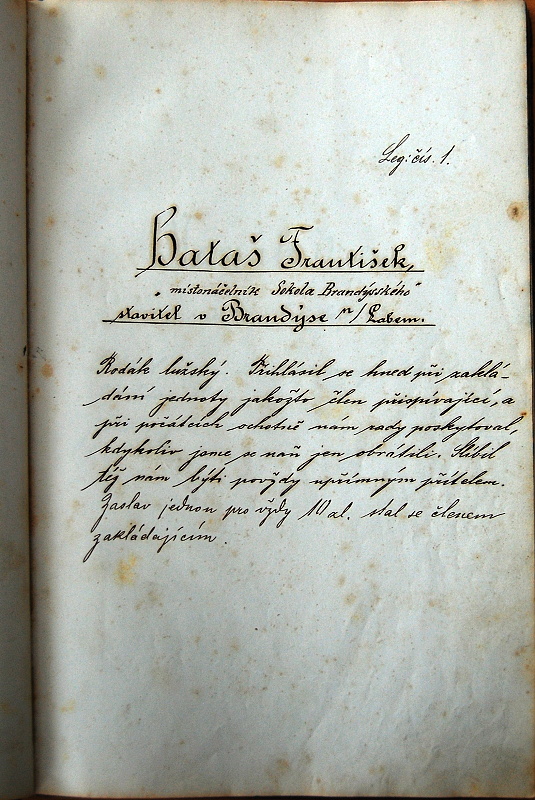 Leg: čís. 1.
Bataš František,
„místonáčelník Sokola Brandýsského“
stavitel v Brandýse n/Labem.
Rodák lužský. Přihlásil se hned při zaklá-
dání jednoty jakožto člen přispívající, a
při počátcích ochotně nám rady poskytoval,
kdykoliv jsme se naň jen obrátili. Slíbil
též nám býti povždy upřímným přítelem.
Zaslav jednou pro vždy 10 zl. stal se členem
zakládajícím.